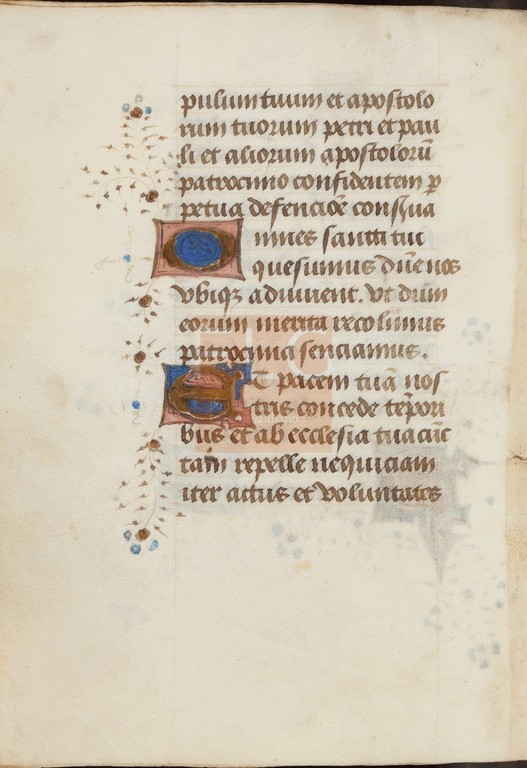 pulum tuum et apostolo
rum tuorum petri et pau
li et aliorum apostolorū
patrocinio confidentem ꝑ
petua defencioē conserua
Omnes sancti tui
quesumus dn̄e nos
vbiqꝫ adiuuent. Vt dum
eorum merita recolimus
patrocinia senciamus.
Et pacem tuā nos
tris concede tēpori
bus et ab ecclesia tua cūc
tam repelle nequiciam
iter actus et voluntates